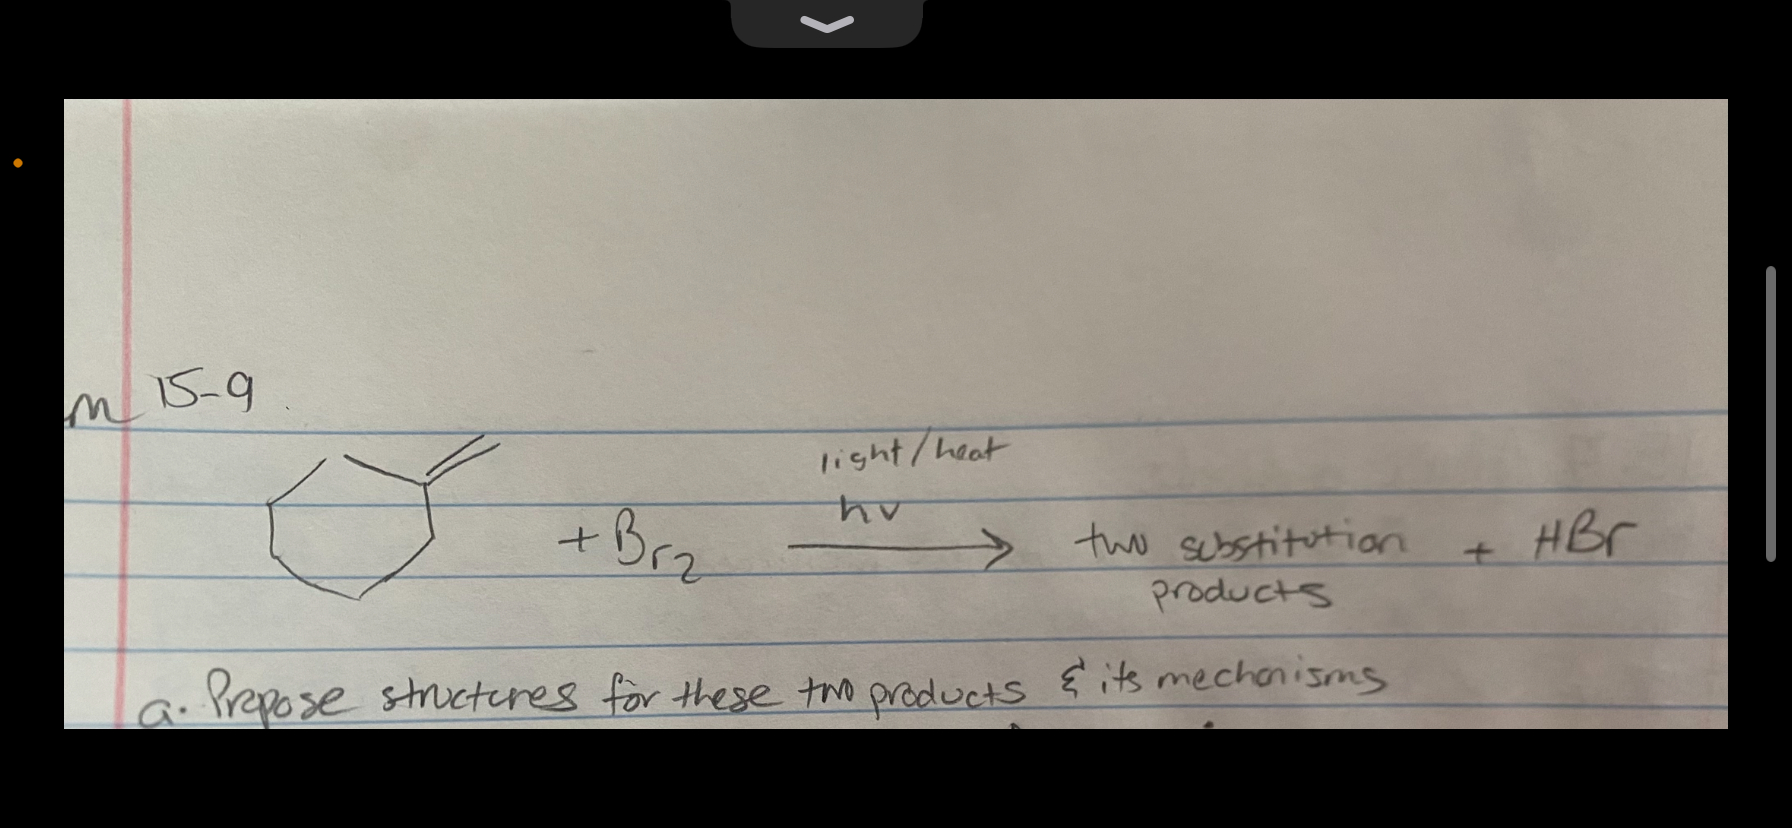 m 15-9.
light/heat
hv
+ Br2 two substitution + HBr
products
a. Propose structures for these two products & its mechanisms